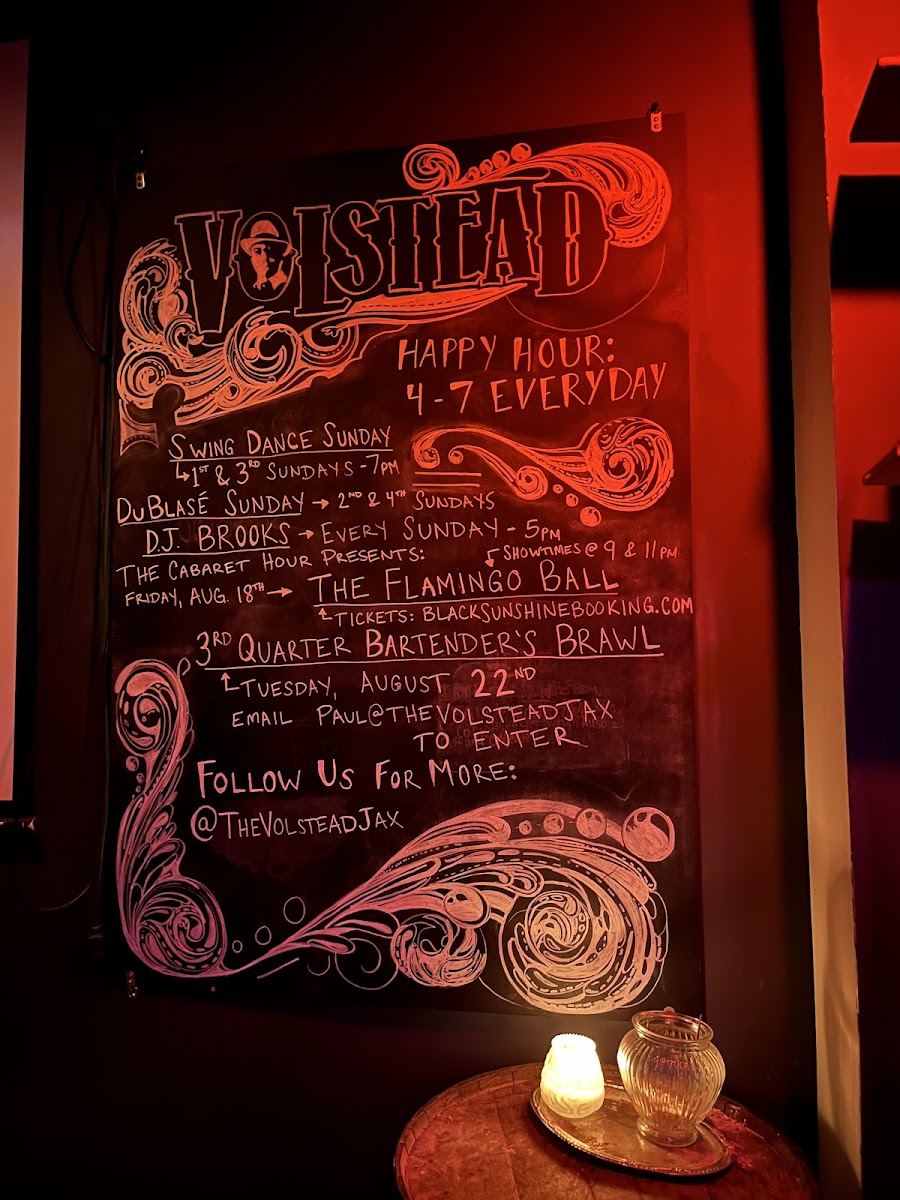 VOLSTEAD
HAPPY HOUR:
4-7 EVERYDAY
SWING DANCE SUNDAY
↳1ST & 3RD SUNDAYS - 7PM
DUBLASÉ SUNDAY → 2ND & 4TH SUNDAYS
D.J. BROOKS → EVERY SUNDAY - 5PM
THE CABARET HOUR PRESENTS:
SHOWTIMES @ 9 & 11 PM
FRIDAY, AUG. 18TH → THE FLAMINGO BALL
TICKETS: BLACKSUNSHINEBOOKING.COM
3RD QUARTER BARTENDER'S BRAWL
TUESDAY, AUGUST 22ND
EMAIL PAUL@THEVOLSTEADJAX
TO ENTER
FOLLOW US FOR MORE:
@THEVOLSTEADJAX